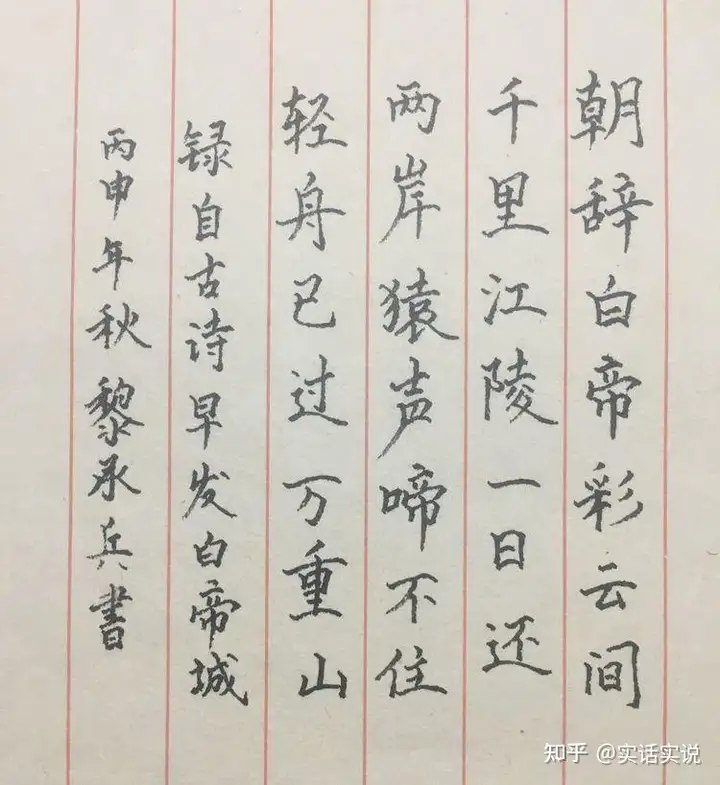 朝辞白帝彩云间
千里江陵一日还
两岸猿声啼不住
轻舟已过万重山
録自古诗早发白帝城
丙申年秋黎承兵書
知乎 @实话实说